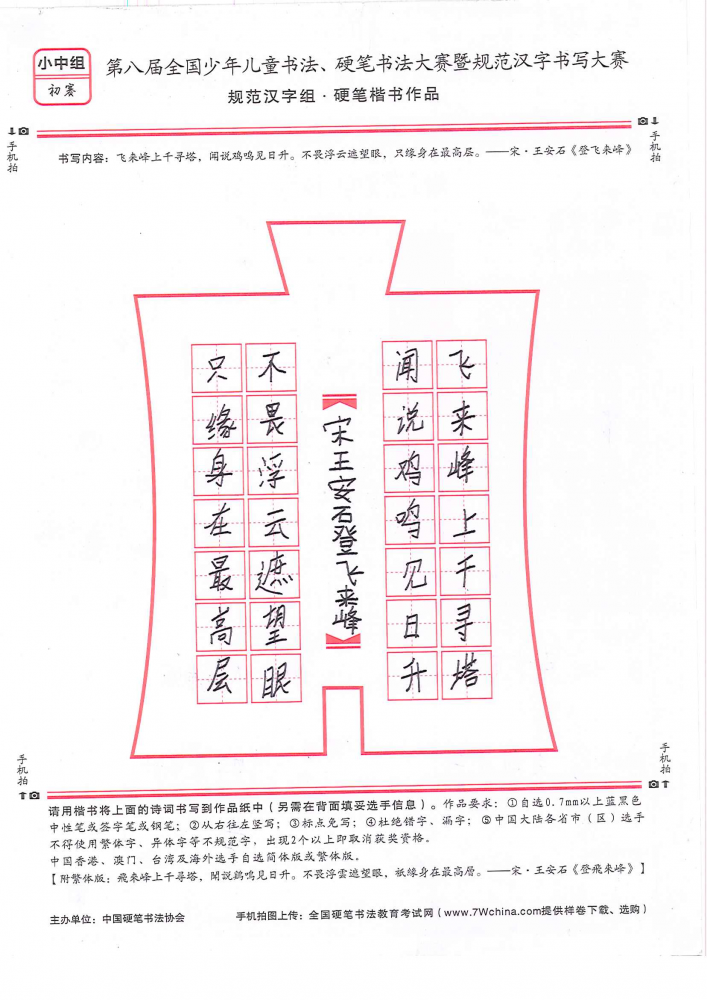 小中组
初赛
第八届全国少年儿童书法、硬笔书法大赛暨规范汉字书写大赛
规范汉字组·硬笔楷书作品
手机拍
手机拍
书写内容：飞来峰上千寻塔，闻说鸡鸣见日升。不畏浮云遮望眼，只缘身在最高层。——宋·王安石《登飞来峰》
飞来峰上千寻塔
闻说鸡鸣见日升
宋王安石登飞来峰
不畏浮云遮望眼
只缘身在最高层
手机拍
手机拍
请用楷书将上面的诗词书写到作品纸中（另需在背面填妥选手信息）。作品要求：①自选0.7mm以上蓝黑色
中性笔或签字笔或钢笔；②从右往左竖写；③标点免写；④杜绝错字、漏字；⑤中国大陆各省市（区）选手
不得使用繁体字、异体字等不规范字，出现2个以上即取消获奖资格。
中国香港、澳门、台湾及海外选手自选简体版或繁体版。
【附繁体版：飛来峰上千尋塔，聞説鷄鳴見日升。不畏浮雲遮望眼，衹緣身在最高層。——宋·王安石《登飛来峰》】
主办单位：中国硬笔书法协会
手机拍图上传：全国硬笔书法教育考试网（www.7Wchina.com提供样卷下载、选购）